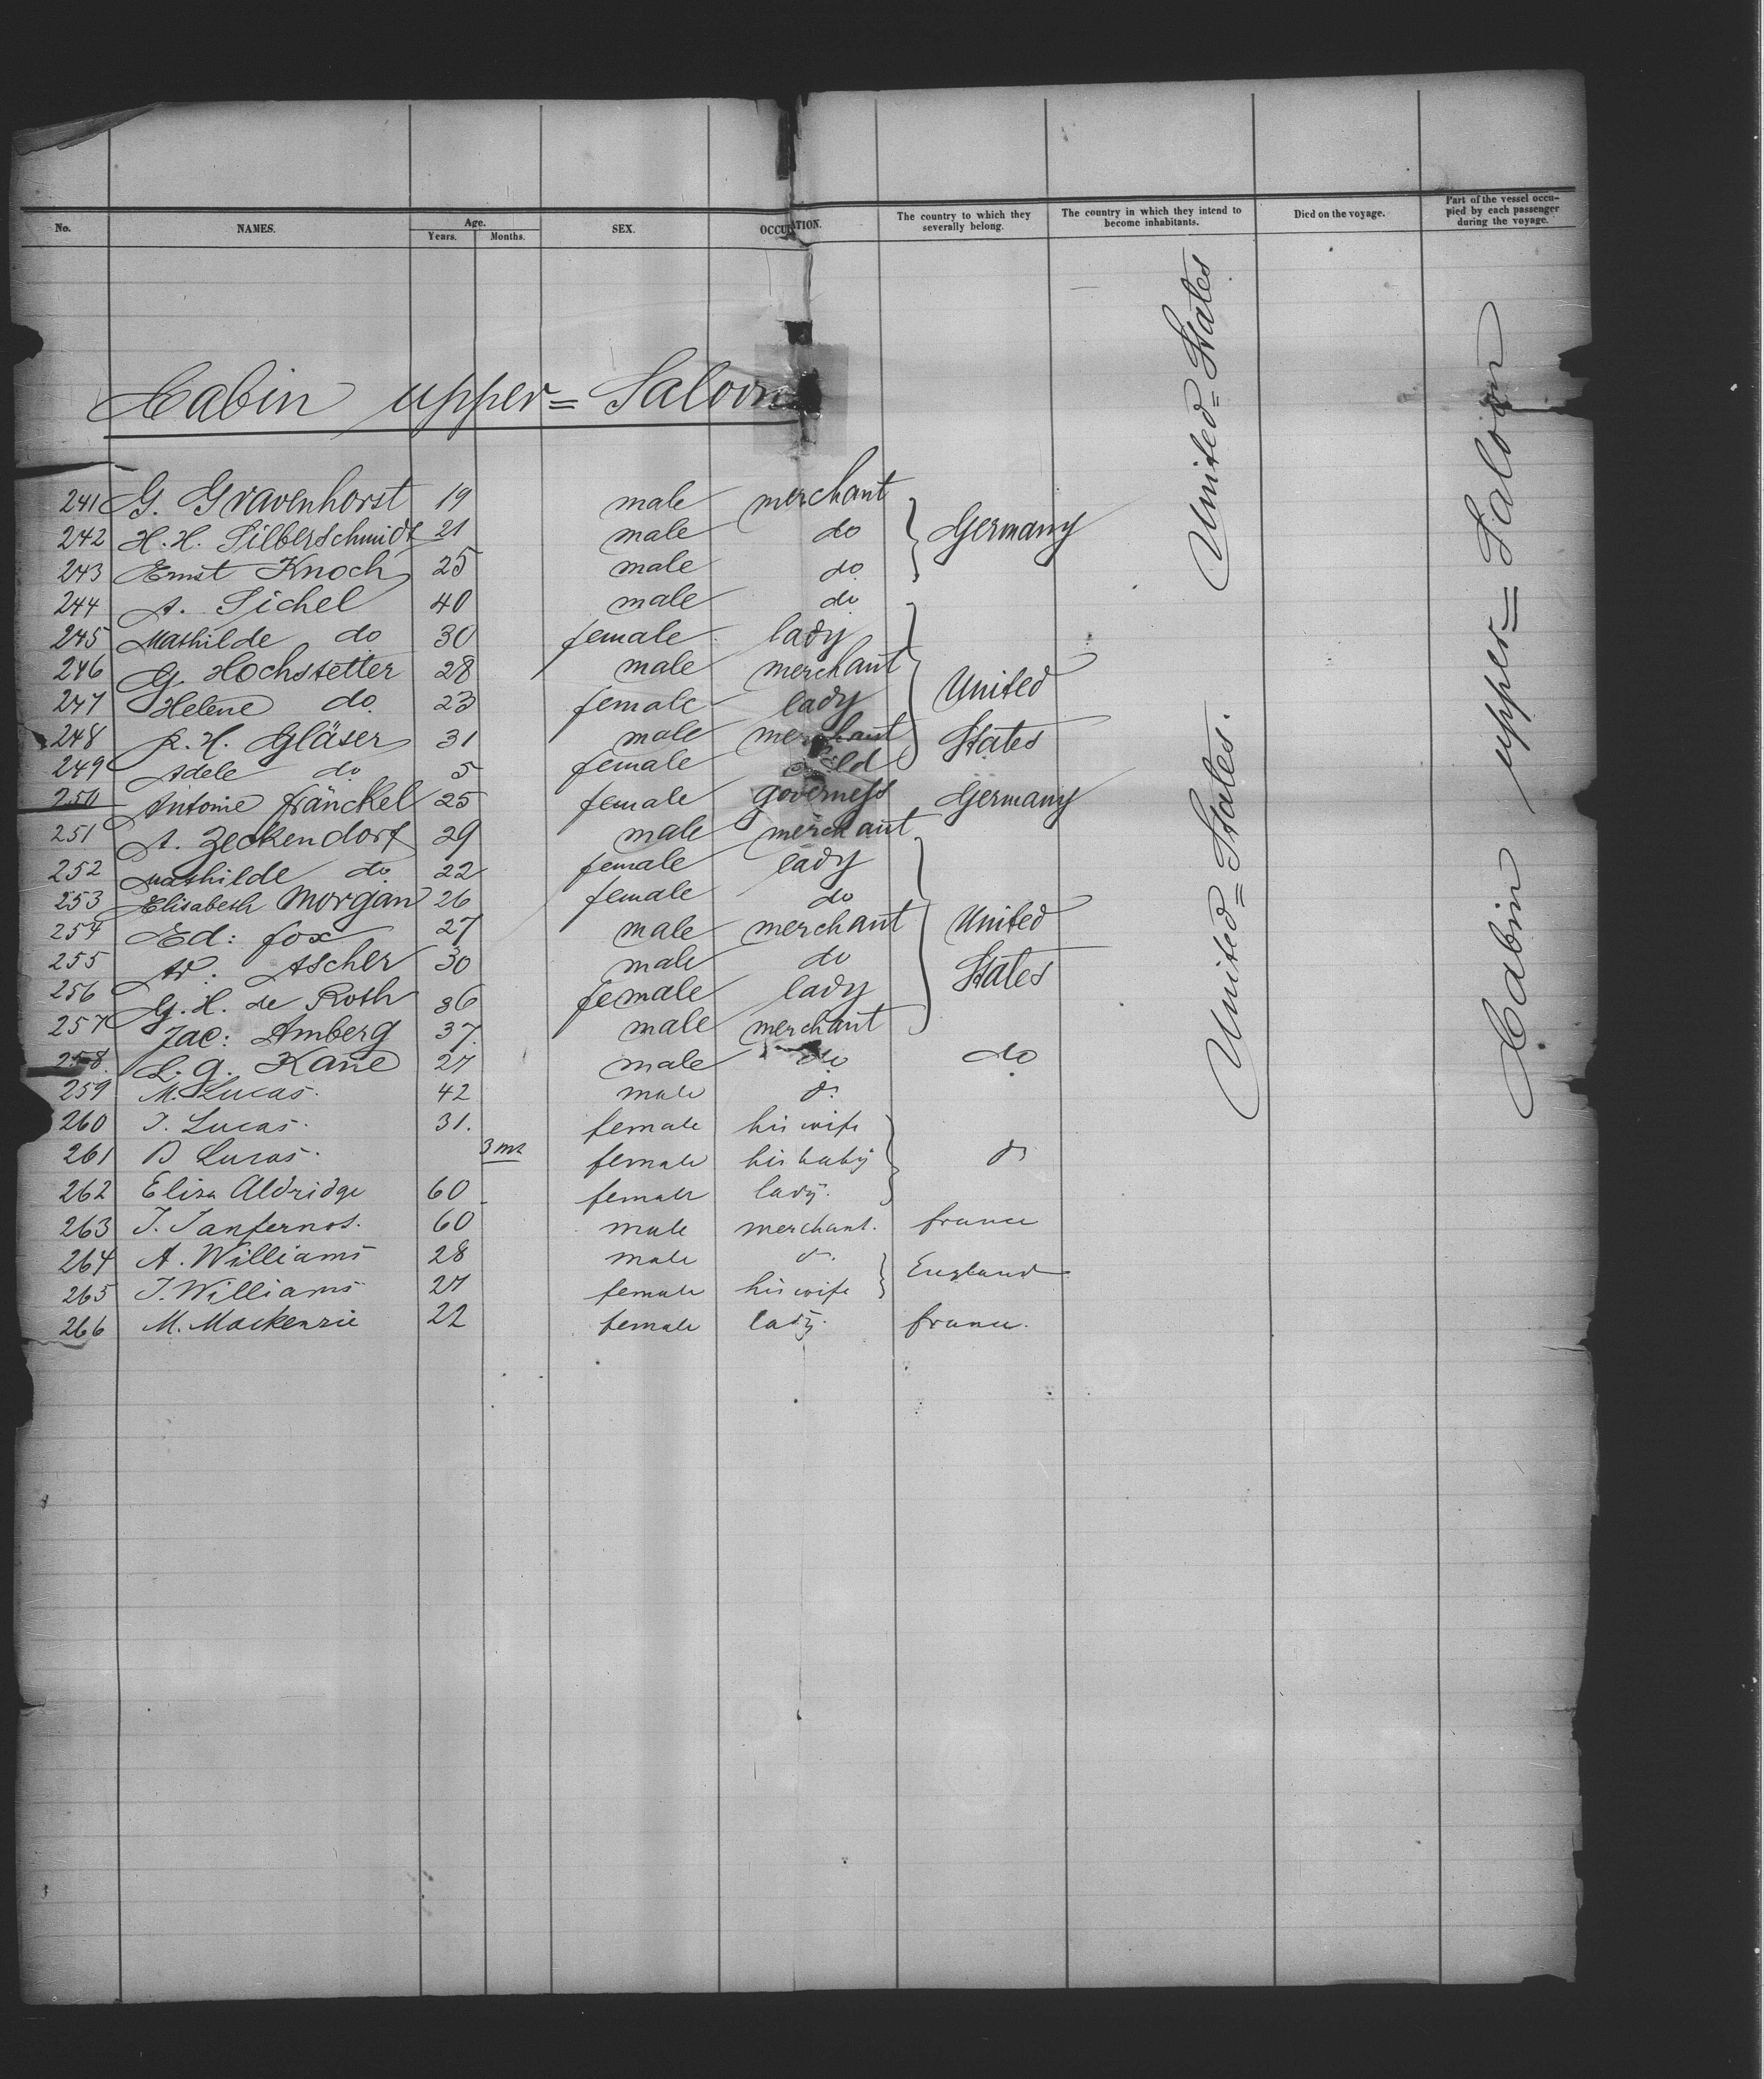 No. NAMES. Age. Years. Months. SEX. OCCUPATION. The country to which they severally belong. The country in which they intend to become inhabitants. Died on the voyage. Part of the vessel occupied by each passenger during the voyage.
Cabin upper= Saloon
241 G. Gravenhorst 19 male merchant
242 H. H. Silberschmidt 21 male do Germany
243 Ernst Knoch 25 male do
244 A. Sichel 40 male do
245 Mathilde do 30 female lady
246 G. Hochstetter 28 male merchant
247 Helene do 23 female lady United
248 R. H. Gläser 31 male merchant States
249 Adele do 5 female child
250 Antonie Fränckel 25 female governess Germany
251 A. Zeckendorf 29 male merchant
252 Mathilde do 22 female lady
253 Elisabeth Morgan 26 female do
254 Ed: Fox 27 male merchant United
255 Ascher 30 male do States
256 G. H. de Roth 36 female lady
257 Jac: Amberg 37. male merchant
258. L. G. Kane 27 male do do
259 M. Lucas. 42 male do
260 J. Lucas. 31. female his wife
261 Lucas. 3 ms female his baby do
262 Eliza Aldridge 60 female lady.
263 60 male merchant. france
264 A. Williams 28 male do England
265 J. Williams 27 female his wife
266 M. Mackenzie 22 female lady. france.
United= States
United= States.
Cabin upper= Saloon